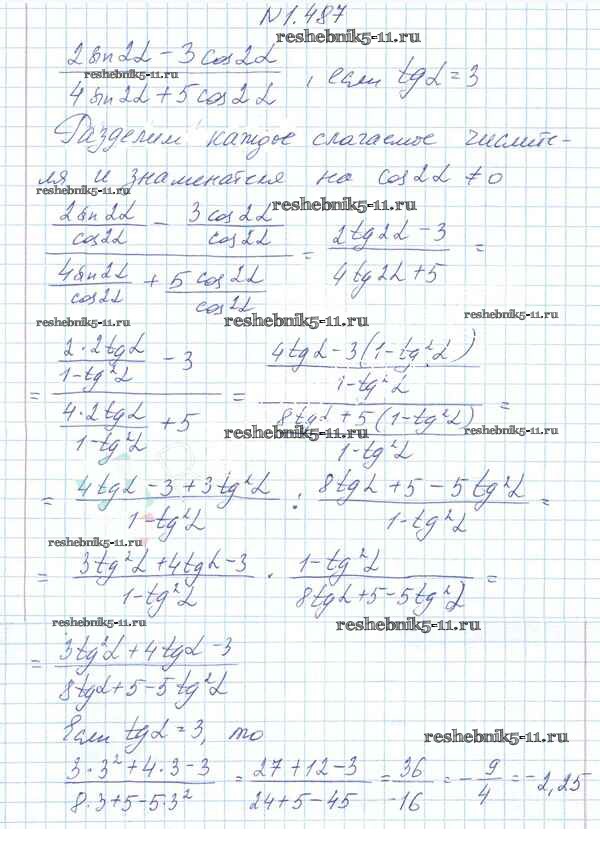 №1.487
reshebnik5-11.ru
(2sin2α − 3cos2α)/(4sin2α + 5cos2α), если tgα = 3
reshebnik5-11.ru
Разделим каждое слагаемое числите-
ля и знаменателя на cos2α ≠ 0
reshebnik5-11.ru
reshebnik5-11.ru
(2sin2α/cos2α − 3cos2α/cos2α)/(4sin2α/cos2α + 5cos2α/cos2α) = (2tg2α − 3)/(4tg2α + 5) =
reshebnik5-11.ru
reshebnik5-11.ru
reshebnik5-11.ru
= (2·2tgα/(1−tg²α) − 3)/(4·2tgα/(1−tg²α) + 5) = ((4tgα − 3(1−tg²α))/(1−tg²α))/((8tgα + 5(1−tg²α))/(1−tg²α)) =
reshebnik5-11.ru
reshebnik5-11.ru
reshebnik5-11.ru
= (4tgα − 3 + 3tg²α)/(1−tg²α) : (8tgα + 5 − 5tg²α)/(1−tg²α) =
reshebnik5-11.ru
= (3tg²α + 4tgα − 3)/(1−tg²α) · (1−tg²α)/(8tgα + 5 − 5tg²α) =
reshebnik5-11.ru
reshebnik5-11.ru
= (3tg²α + 4tgα − 3)/(8tgα + 5 − 5tg²α)
Если tgα = 3, то
reshebnik5-11.ru
(3·3² + 4·3 − 3)/(8·3 + 5 − 5·3²) = (27 + 12 − 3)/(24 + 5 − 45) = 36/−16 = −9/4 = −2,25